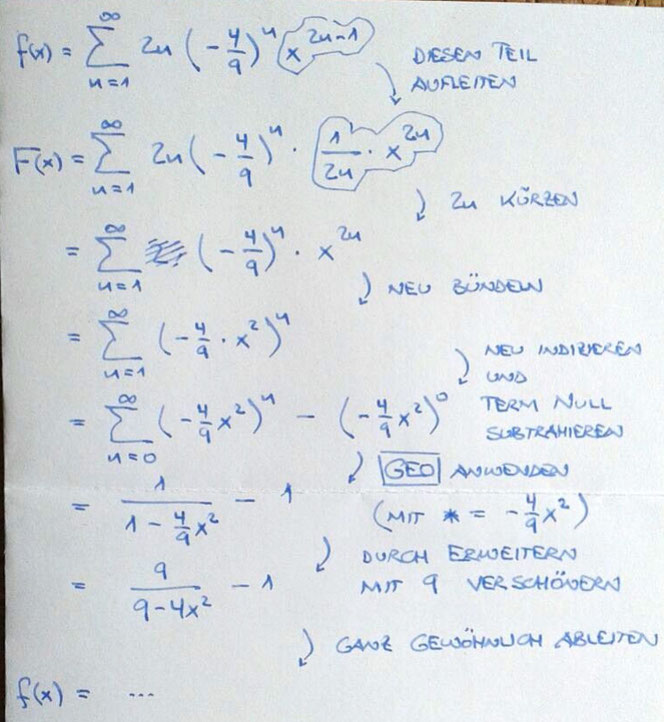 f(x) = ∑_{n=1}^{∞} 2n (-4/9)^n x^{2n-1}
DIESEN TEIL
AUFLEITEN
F(x) = ∑_{n=1}^{∞} 2n (-4/9)^n · 1/2n · x^{2n}
2n KÜRZEN
= ∑_{n=1}^{∞} (-4/9)^n · x^{2n}
NEU BÜNDELN
= ∑_{n=1}^{∞} (-4/9 · x²)^n
NEU INDIZIEREN
UND
TERM NULL
SUBTRAHIEREN
= ∑_{n=0}^{∞} (-4/9 x²)^n - (-4/9 x²)^0
GEO ANWENDEN
(MIT * = -4/9 x²)
= 1/(1 - 4/9 x²) - 1
DURCH ERWEITERN
MIT 9 VERSCHÖNERN
= 9/(9-4x²) - 1
GANZ GEWÖHNLICH ABLEITEN
f(x) = ...